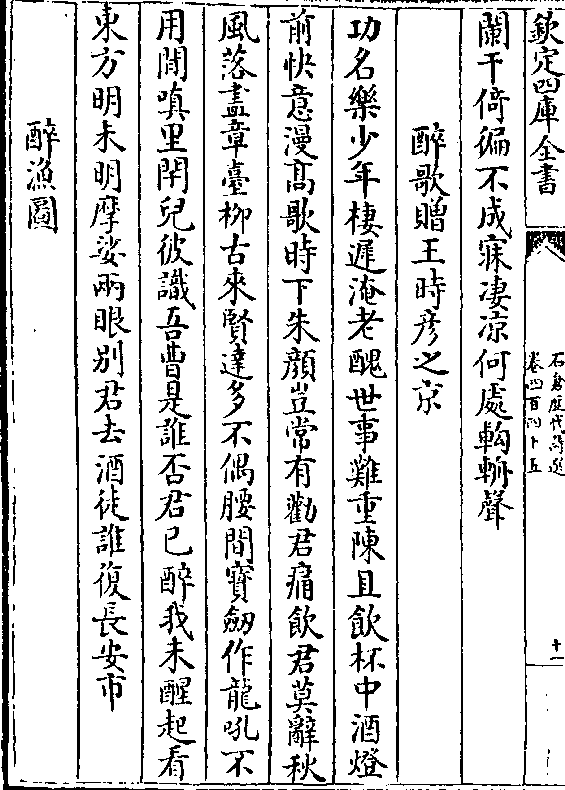 欽定四庫全書
石倉歷代詩選
卷四百四十五
十一
闌干倚徧不成寐凄凉何處輷輧聲
醉歌贈王時彦之京
功名樂少年棲遲淹老醜世事難重陳且飲杯中酒燈
前快意漫髙歌時下朱顔豈常有勸君痛飲君莫辭秋
風落盡章臺柳古來賢達多不偶腰間寳劒作龍吼不
用閭嗔里閈兒彼識吾曹是誰否君已醉我未醒起看
東方明未明摩娑兩眼别君去酒徒誰復長安市
醉漁圖